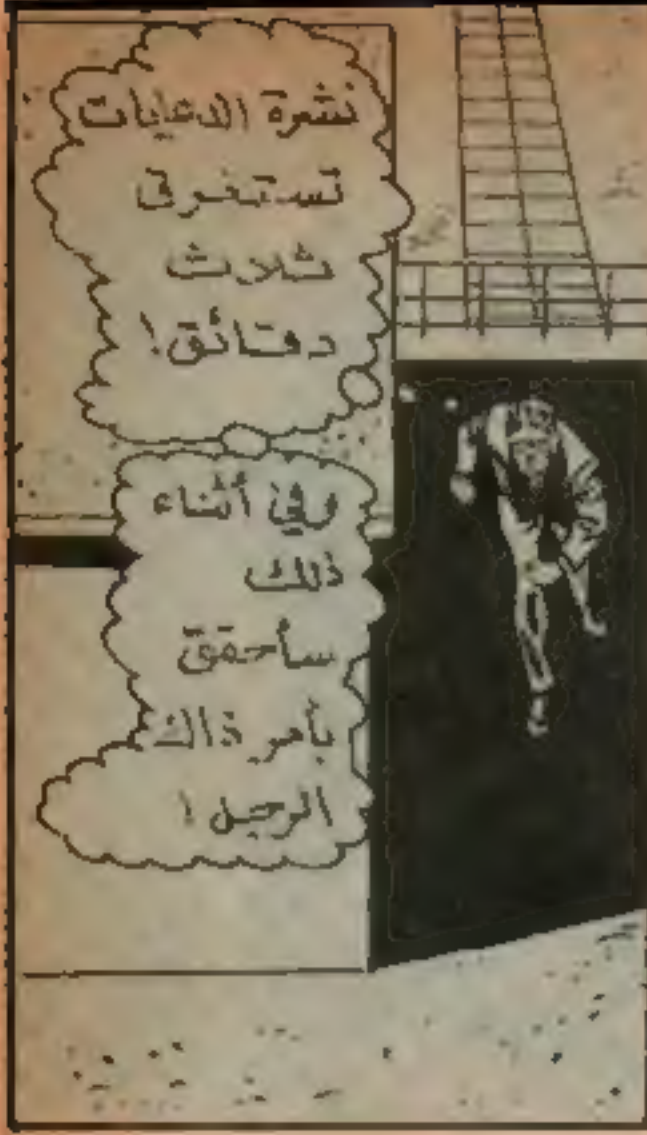 نشرة الدعايات
تستغرق
ثلاث
دقائق!
وفي أثناء
ذلك
سأحقق
بأمر ذاك
الرجل!